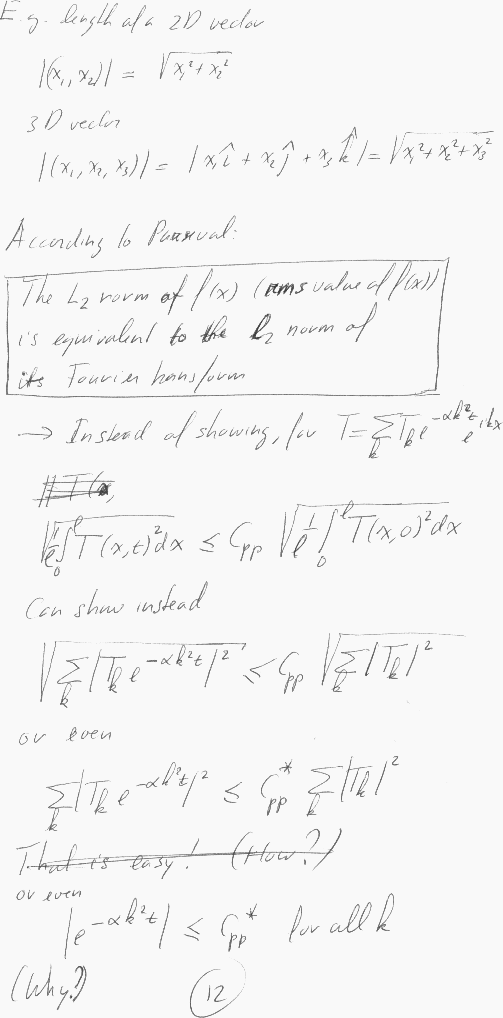 E.g. length of a 2D vector
|(x₁, x₂)| = √(x₁² + x₂²)
3D vector
|(x₁, x₂, x₃)| = |x₁î + x₂ĵ + x₃k̂| = √(x₁² + x₂² + x₃²)
According to Parseval:
The L₂ norm of f(x) (rms value of f(x))
is equivalent to the l₂ norm of
its Fourier transform
→ Instead of showing, for T = Σ_k T_k e^{-αk²t} e^{ikx}
√(1/ℓ ∫₀^ℓ T(x,t)² dx) ≤ C_pp √(1/ℓ ∫₀^ℓ T(x,0)² dx)
Can show instead
√(Σ_k |T_k e^{-αk²t}|²) ≤ C_pp √(Σ_k |T_k|²)
or even
Σ_k |T_k e^{-αk²t}|² ≤ C*_pp Σ_k |T_k|²
That is easy! (How?)
or even
|e^{-αk²t}| ≤ C*_pp for all k
(Why?)
12